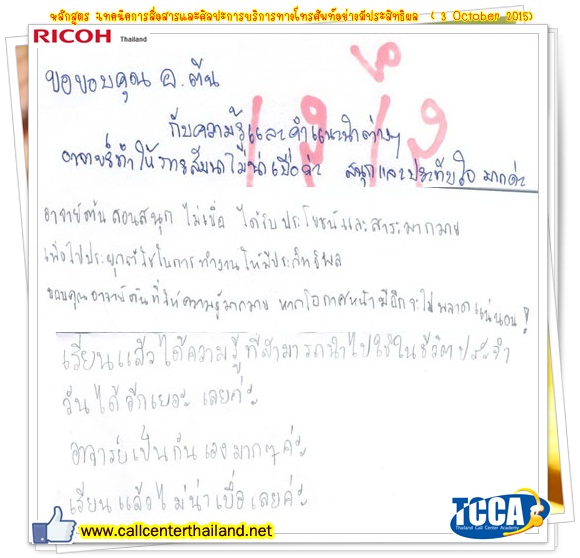 หลักสูตร เทคนิคการสื่อสารและศิลปะการบริการทางโทรศัพท์อย่างมีประสิทธิผล ( 3 October 2015)
RICOH Thailand
ขอขอบคุณ อ.ต้น
กับความรู้และคำแนะนำต่างๆ
อาจารย์ทำให้การสัมนาไม่น่าเบื่อค่ะ สนุกและประทับใจ มากค่ะ
อาจารย์ต้น สอนสนุก ไม่เบื่อ ได้รับประโยชน์และสาระมากมาย
เพื่อไปประยุกต์ใช้ในการทำงานให้มีประสิทธิผล
ขอบคุณอาจารย์ต้นที่ให้ความรู้มากมาย หากโอกาสหน้ามีอีกจะไม่พลาดแน่นอน!
เรียนแล้วได้ความรู้ที่สามารถนำไปใช้ในชีวิตประจำ
วันได้อีกเยอะเลยค่ะ
อาจารย์เป็นกันเองมากๆค่ะ
เรียนแล้วไม่น่าเบื่อเลยค่ะ
www.callcenterthailand.net
TCCA
Thailand Call Center Academy